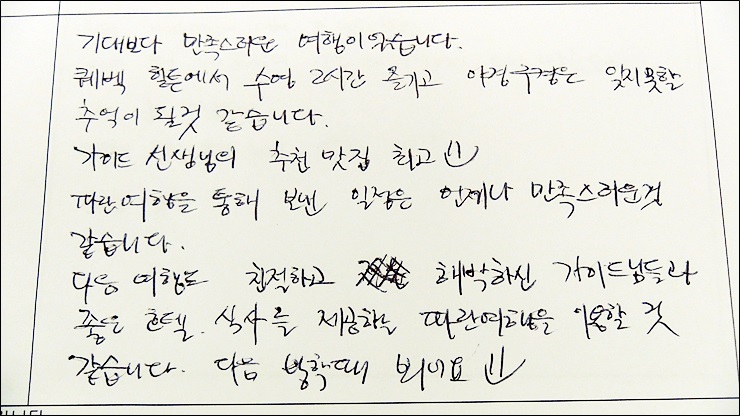 기대보다 만족스러운 여행이었습니다.
퀘벡 힐튼에서 수영 2시간 즐기고 야경구경은 잊지못할
추억이 될것 같습니다.
가이드 선생님의 추천 맛집 최고
파란여행을 통해 보낸 일정은 언제나 만족스러운것
같습니다.
다음 여행도 친절하고 해박하신 가이드님들과
좋은 호텔. 식사를 제공하는 파란여행을 이용할 것
같습니다. 다음 방학때 봬어요